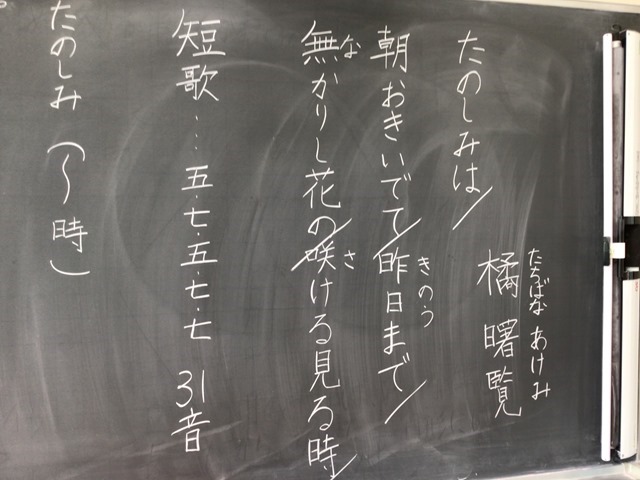 たのしみは/
橘 曙覧
たちばな あけみ
朝おきいでて/昨日まで/
きのう
無かりし花の/咲ける見る時/
な さ
短歌…五・七・五・七・七 31音
たのしみ(~時)